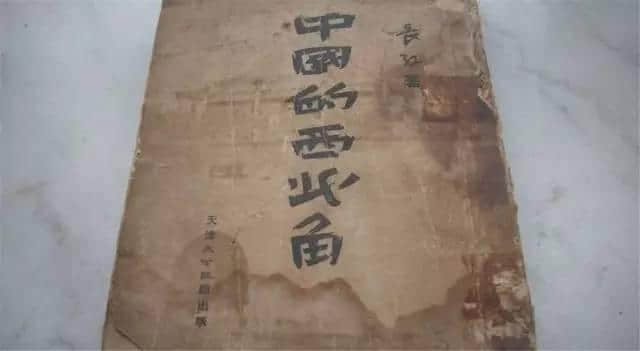 長江 著
中國的西北角
天津大公報館出版